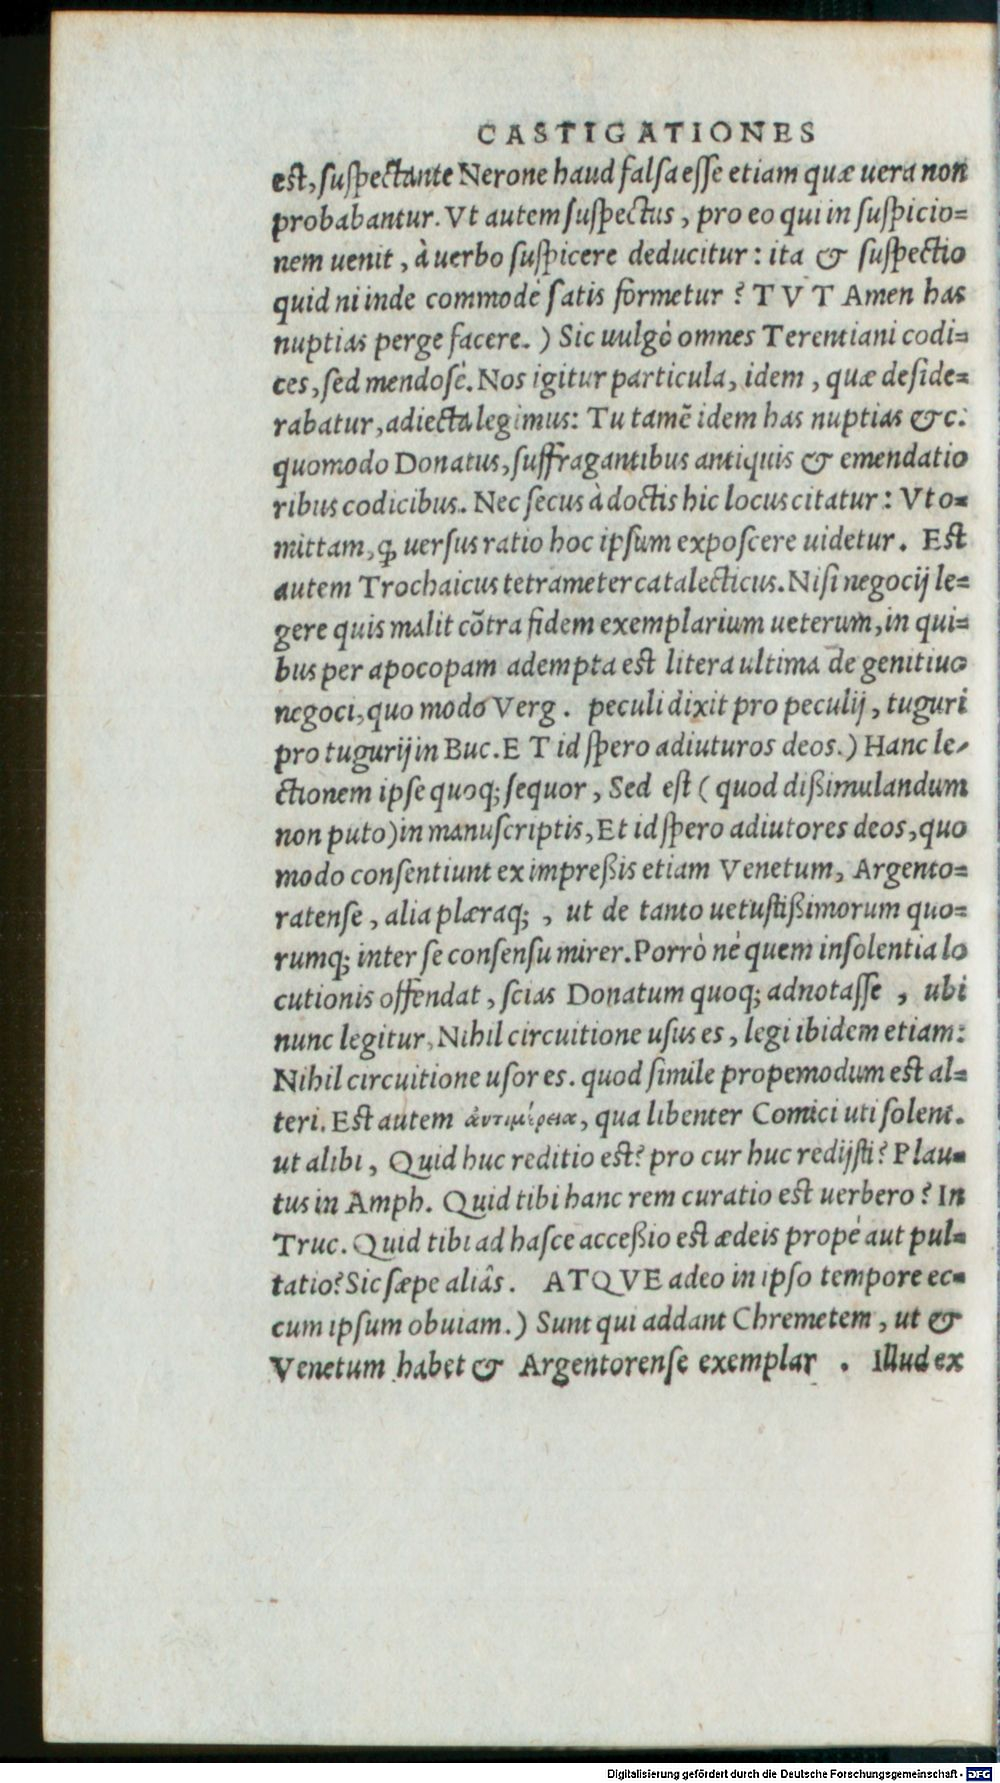 CASTIGATIONES
est, suspectante Nerone haud falsa esse etiam quæ uera non
probabantur. Vt autem suspectus, pro eo qui in suspicio=
nem uenit, à uerbo suspicere deducitur: ita & suspectio
quid ni inde commodè satis formetur? TVT Amen has
nuptias perge facere.) Sic uulgò omnes Terentiani codi=
ces, sed mendosè. Nos igitur particula, idem, quæ deside=
rabatur, adiecta legimus: Tu tamē idem has nuptias &c:
quomodo Donatus, suffragantibus antiquis & emendatio
ribus codicibus. Nec secus à doctis hic locus citatur: Vt o=
mittam, ꝙ uersus ratio hoc ipsum exposcere uidetur. Est
autem Trochaicus tetrameter catalecticus. Nisi negocij le=
gere quis malit cōtra fidem exemplarium ueterum, in qui=
bus per apocopam adempta est litera ultima de genitiuo
negoci, quo modo Verg. peculi dixit pro peculij, tuguri
pro tugurij in Buc. ET id spero adiuturos deos.) Hanc le=
ctionem ipse quoq; sequor, Sed est (quod dißimulandum
non puto) in manuscriptis, Et id spero adiutores deos, quo
modo consentiunt ex impreßis etiam Venetum, Argento=
ratense, alia plæraq;, ut de tanto uetustißimorum quo=
rumq; inter se consensu mirer. Porrò nè quem insolentia lo
cutionis offendat, scias Donatum quoq; adnotasse, ubi
nunc legitur, Nihil circuitione usus es, legi ibidem etiam:
Nihil circuitione usor es. quod simile propemodum est al=
teri. Est autem ἀντιμέρεια, qua libenter Comici uti solent.
ut alibi, Quid huc reditio est? pro cur huc redijsti? Plau=
tus in Amph. Quid tibi hanc rem curatio est uerbero? In
Truc. Quid tibi ad hasce acceßio est ædeis propè aut pul=
tatio? Sic sæpe aliâs. ATQVE adeo in ipso tempore ec=
cum ipsum obuiam.) Sunt qui addant Chremetem, ut &
Venetum habet & Argentorense exemplar. Illud ex
Digitalisierung gefördert durch die Deutsche Forschungsgemeinschaft - DFG